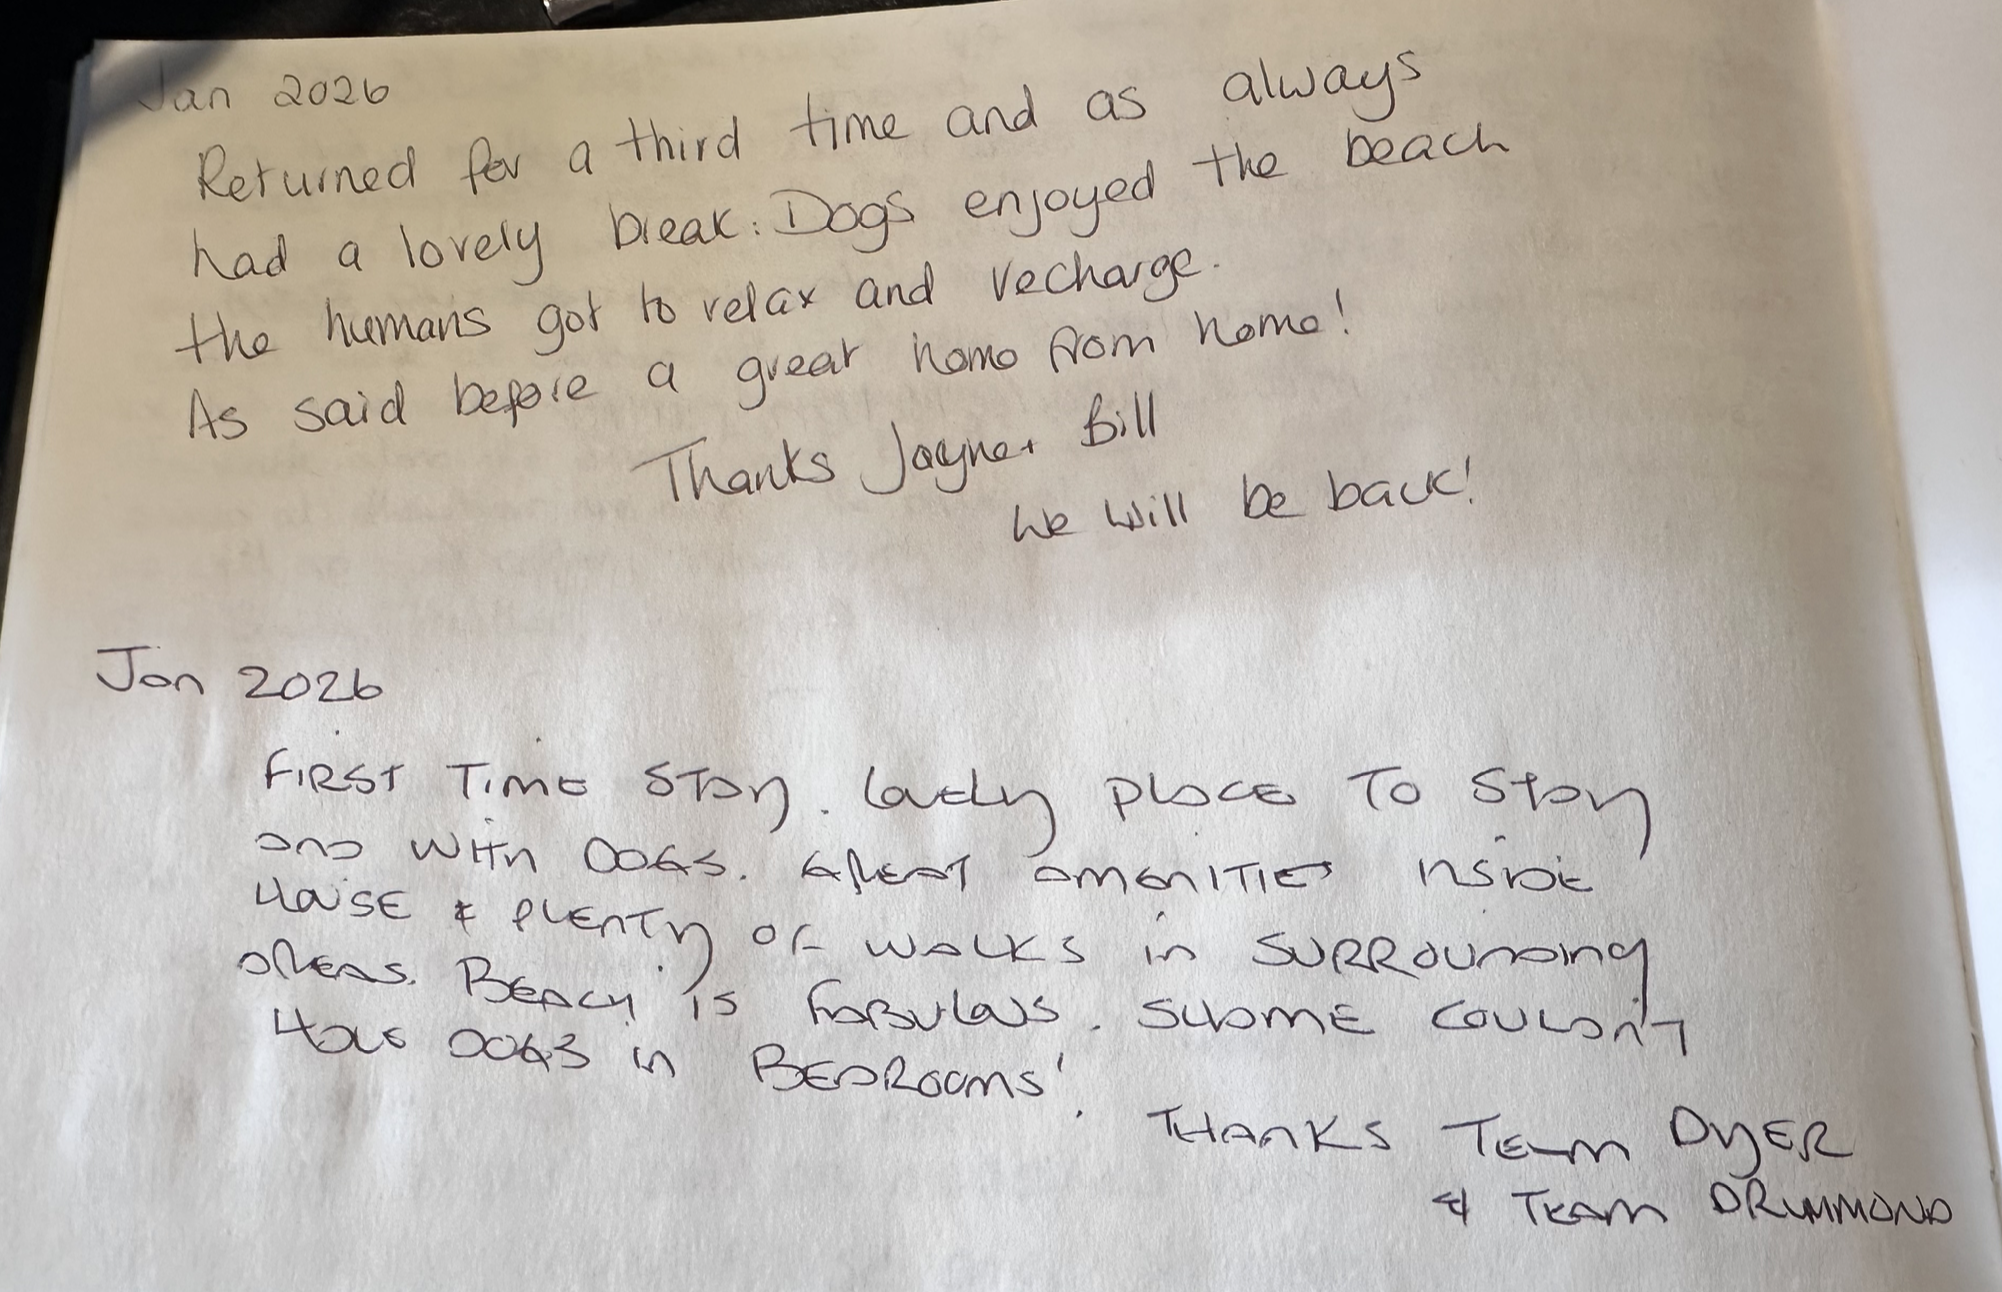 Jan 2026
Returned for a third time and as always
had a lovely break. Dogs enjoyed the beach
the humans got to relax and recharge.
As said before a great home from home!
Thanks Jayne + Bill
We will be back!
Jan 2026
FIRST TIME STAY. Lovely PLACE TO STAY
AND WITH DOGS. GREAT AMENITIES INSIDE
HOUSE & PLENTY OF WALKS in SURROUNDING
AREAS. BEACH IS FABULOUS. SHAME COULDN'T
HAVE DOGS in BEDROOMS!
THANKS TEAM DYER
& TEAM DRUMMOND